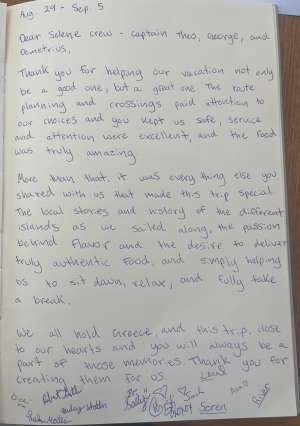 Aug. 29 - Sep. 5
Dear Selene crew - Captain Theo, George, and
Demetrius,
Thank you for helping our vacation not only
be a good one, but a great one. The route
planning and crossings paid attention to
our choices and you kept us safe, service
and attention were excellent, and the food
was truly amazing.
More than that, it was everything else you
shared with us that made this trip special.
The local stories and history of the different
islands as we sailed along, the passion
behind flavor and the desire to deliver
truly authentic food, and simply helping
us to sit down, relax, and fully take
a break.
We all hold Greece, and this trip, close
to our hearts and you will always be a
part of those memories. Thank you for
creating them for us.
Soren